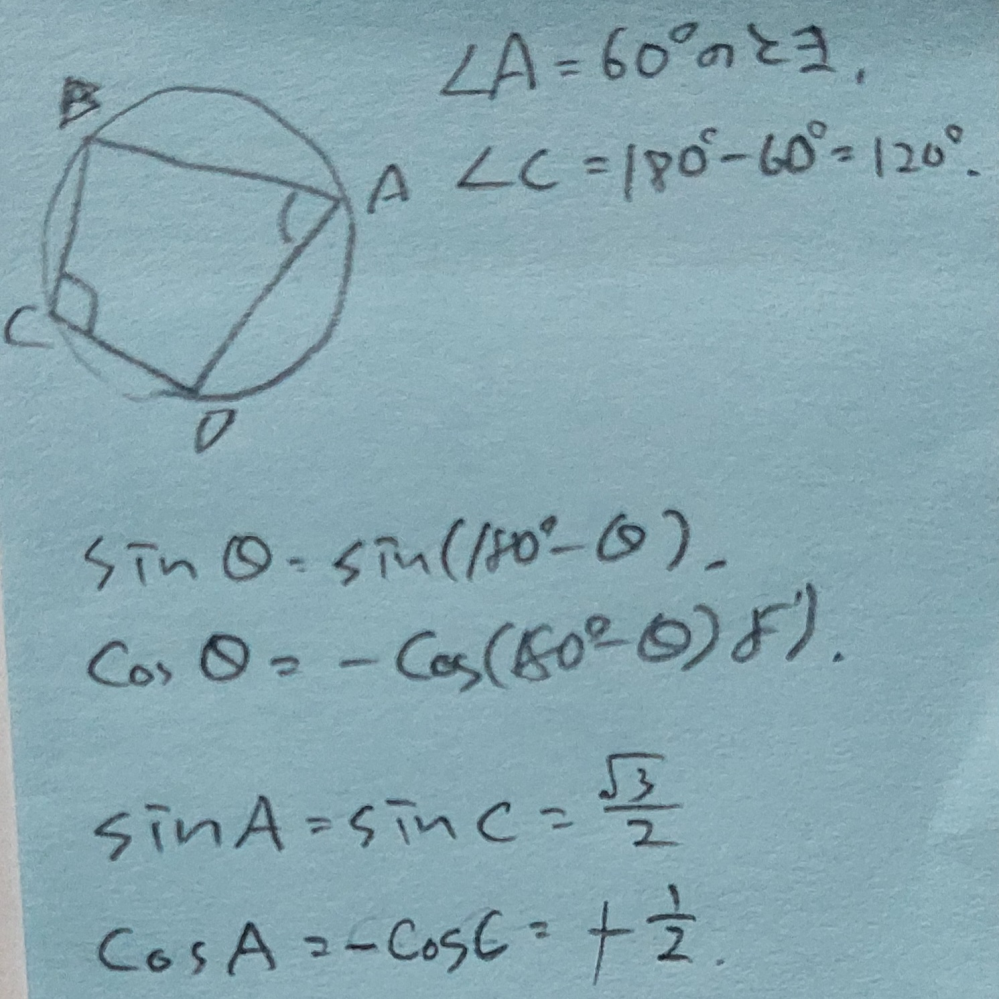 ∠A=60°のとき,
B
A
∠C=180°-60°=120°.
C
D
sinθ=sin(180°-θ).
cosθ=-cos(180°-θ)より.
sinA=sinC=√3/2
cosA=-cosC=+1/2.